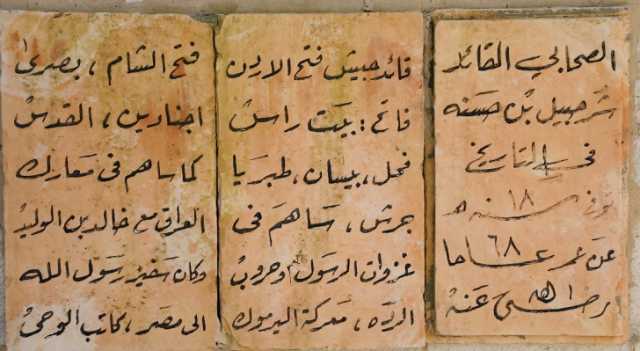 الصحابي القائد
شرحبيل بن حسنه
في التاريخ
توفي سنه ١٨ هـ
عن عمر ٦٨ عاما
رضي الله عنه
قائد جيش فتح الاردن
فاتح: بيت راس
فحل، بيسان، طبريا
جرش، ساهم في
غزوات الرسول وحروب
الرده، معركة اليرموك
فتح الشام، بصرى
اجنادين، القدس
كما ساهم في معارك
العراق مع خالد بن الوليد
وكان سفير رسول الله
الى مصر، كاتب الوحي